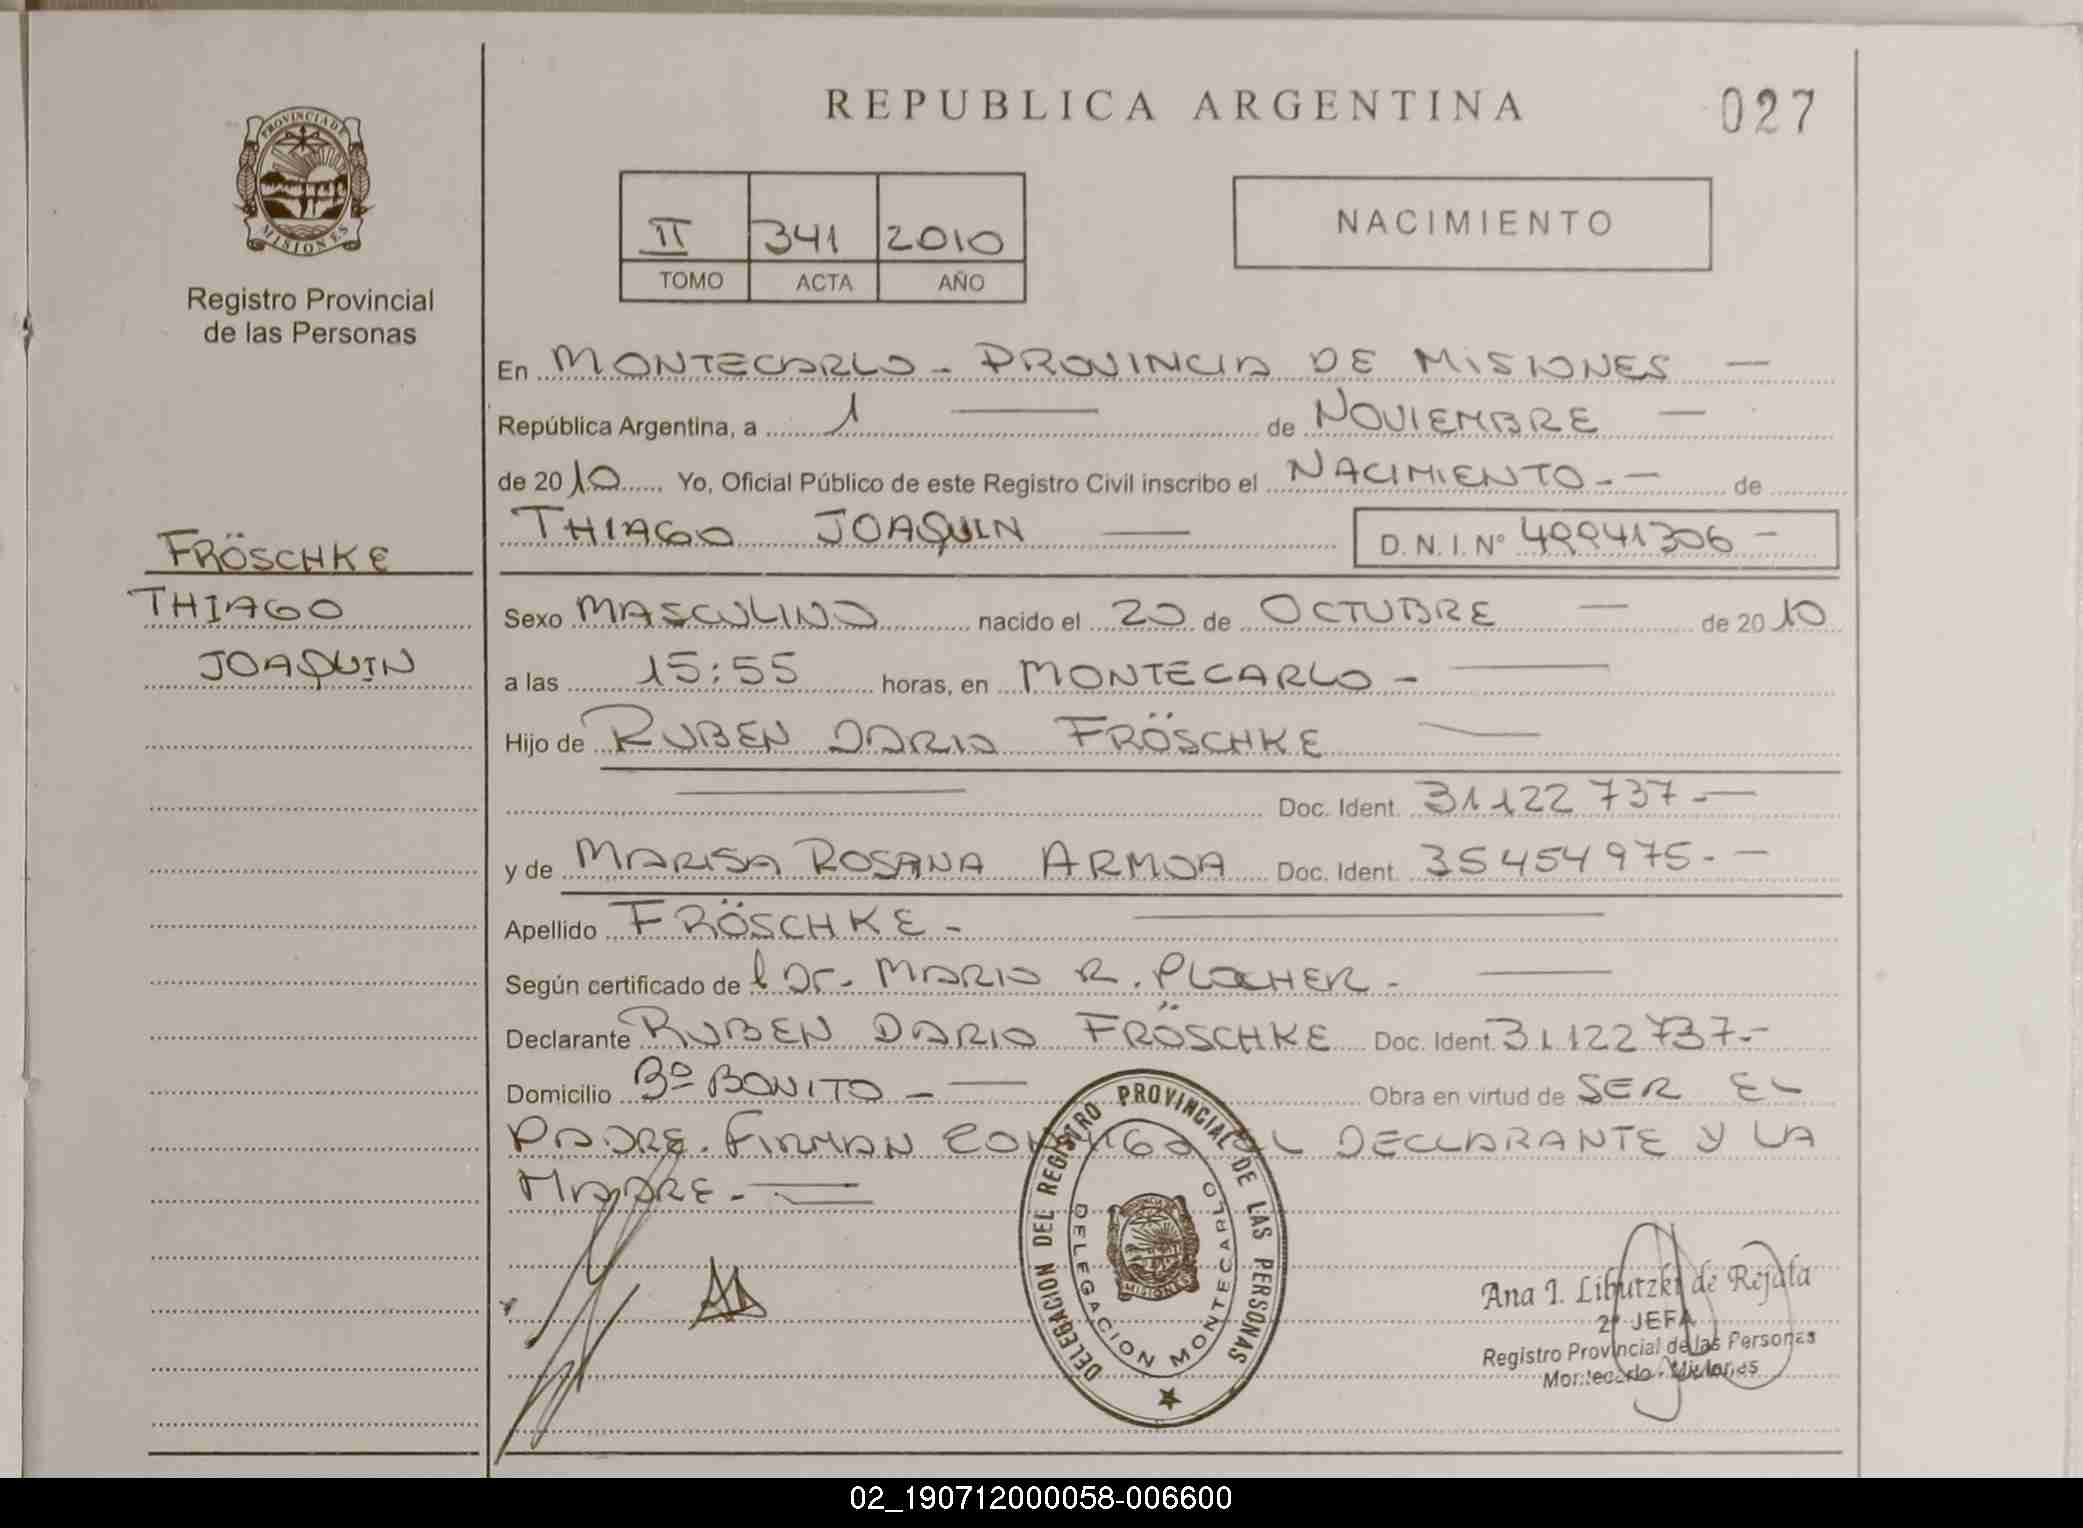 REPUBLICA ARGENTINA
027
PROVINCIA DE
MISIONES
Registro Provincial
de las Personas
II 341 2010
TOMO ACTA AÑO
NACIMIENTO
En MONTECARLO - PROVINCIA DE MISIONES —
República Argentina, a 1 — de NOVIEMBRE —
de 2010 Yo, Oficial Público de este Registro Civil inscribo el NACIMIENTO.- — de
THIAGO JOAQUIN — D. N. I. N° 49941306 -
FRÖSCHKE
THIAGO
JOAQUIN
Sexo MASCULINO nacido el 20 de OCTUBRE — de 2010
a las 15:55 horas, en MONTECARLO - —
Hijo de RUBEN DARIO FRÖSCHKE —
— Doc. Ident. 31122737.-
y de MARISA ROSANA ARMOA Doc. Ident. 35454975.- —
Apellido FRÖSCHKE - —
Según certificado de l Dr. MARIO R. PLOCHER - —
Declarante RUBEN DARIO FRÖSCHKE Doc. Ident. 31122737.-
Domicilio Bº BONITO - — Obra en virtud de SER EL
PADRE. FIRMAN CONMIGO EL DECLARANTE Y LA
MADRE. —
DELEGACION DEL REGISTRO PROVINCIAL DE LAS PERSONAS
DELEGACION MONTECARLO
MISIONES
Ana I. Libutzki de Rejala
2ª JEFA
Registro Provincial de las Personas
Montecarlo - Misiones
02_190712000058-006600